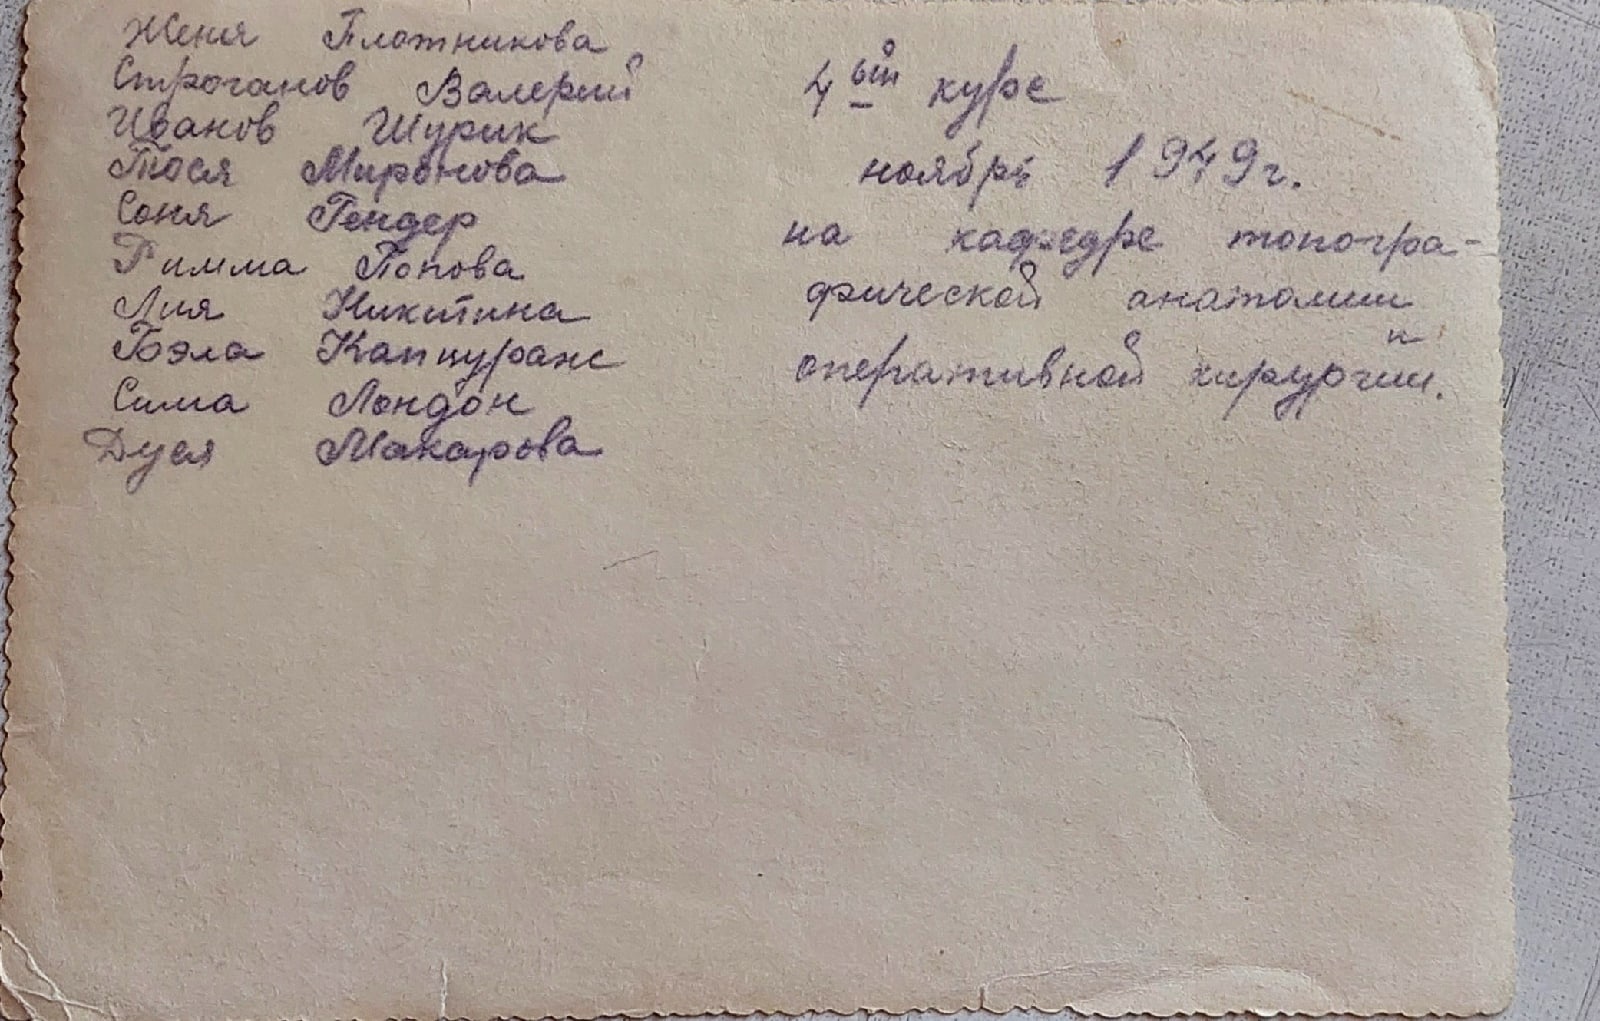 Женя Плотникова
Строганов Валерий
Иванов Шурик
Тося Миронова
Соня Гендер
Римма Попова
Лия Никитина
Бэла Капцуранс
Сима Лондон
Дуся Макарова
4ый курс
ноябрь 1949г.
на кафедре топогра-
фической анатомии
и
оперативной хирургии.